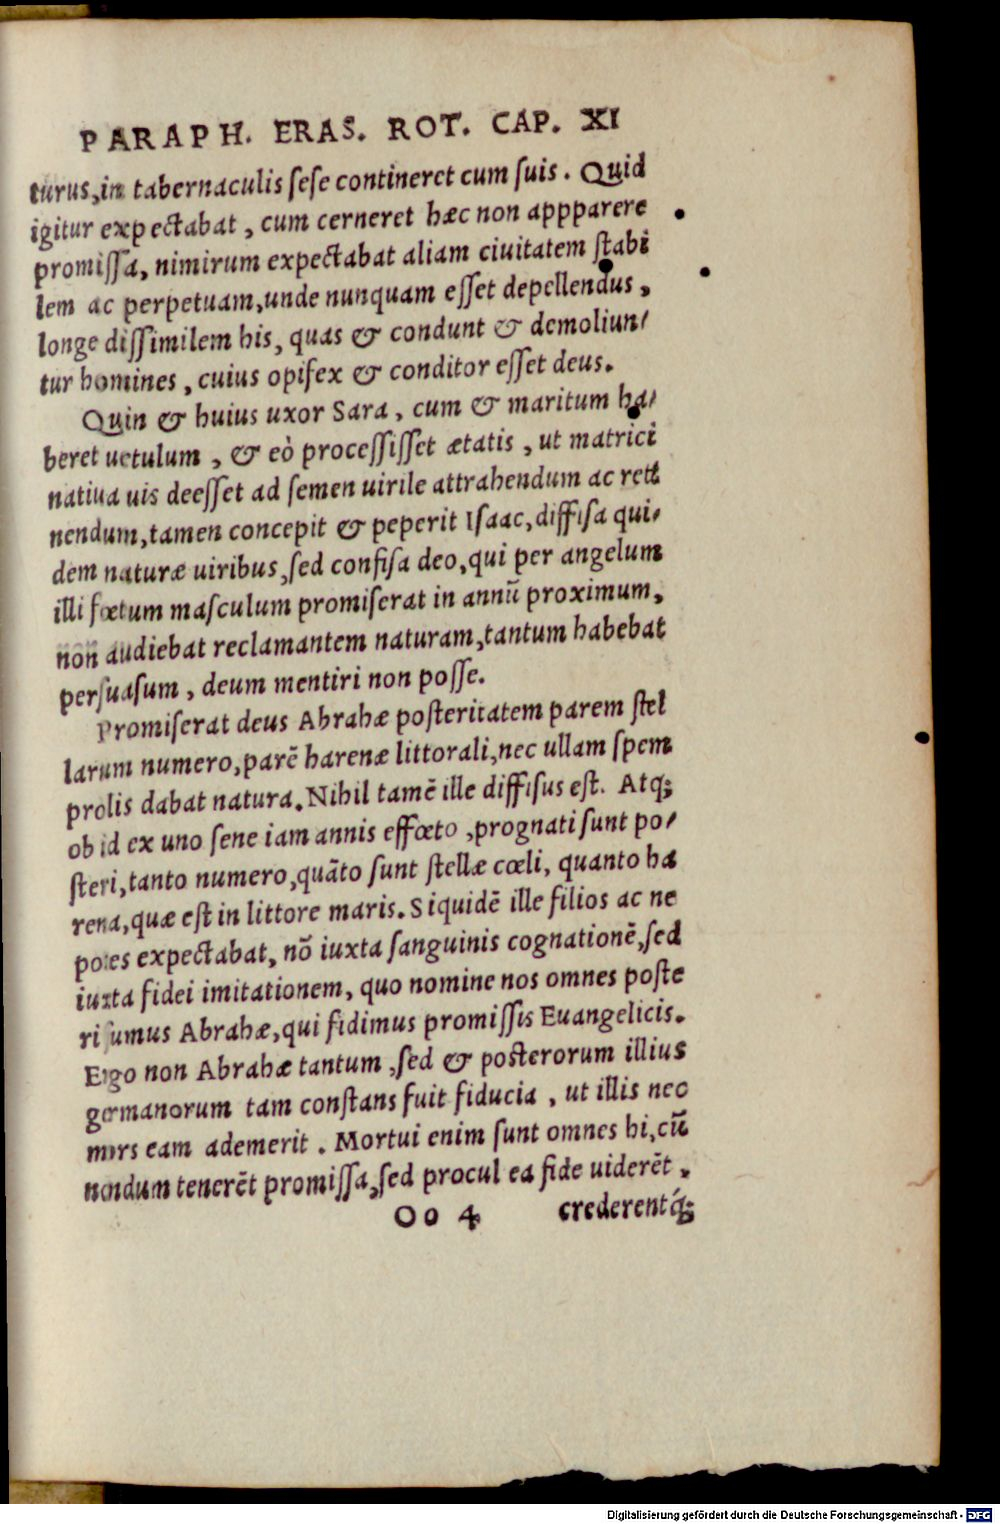 PARAPH. ERAS. ROT. CAP. XI
turus,in tabernaculis ſeſe contineret cum ſuis. Quid
igitur expectabat, cum cerneret hæc non appparere
promiſſa, nimirum expectabat aliam ciuitatem ſtabi
lem ac perpetuam,unde nunquam eſſet depellendus,
longe diſſimilem his, quas & condunt & demoliun/
tur homines, cuius opifex & conditor eſſet deus.
Quin & huius uxor Sara, cum & maritum ha/
beret uetulum, & eò proceſſiſſet ætatis, ut matrici
natiua uis deeſſet ad ſemen uirile attrahendum ac reti
nendum,tamen concepit & peperit Iſaac,diffiſa qui/
dem naturæ uiribus,ſed confiſa deo,qui per angelum
illi fœtum maſculum promiſerat in annū proximum,
non audiebat reclamantem naturam,tantum habebat
perſuaſum, deum mentiri non poſſe.
Promiſerat deus Abrahæ poſteritatem parem ſtel
larum numero,parē harenæ littorali,nec ullam ſpem
prolis dabat natura. Nihil tamē ille diffiſus eſt. Atq;
ob id ex uno ſene iam annis effœto ,prognati ſunt po/
ſteri,tanto numero,quāto ſunt ſtellæ cœli, quanto ha
rena,quæ eſt in littore maris. Siquidē ille filios ac ne
potes expectabat, nō iuxta ſanguinis cognationē,ſed
iuxta fidei imitationem, quo nomine nos omnes poſte
ri ſumus Abrahæ,qui fidimus promiſſis Euangelicis.
Ergo non Abrahæ tantum ,ſed & poſterorum illius
germanorum tam conſtans fuit fiducia, ut illis nec
mors eam ademerit. Mortui enim ſunt omnes hi,cū
nondum tenerēt promiſſa,ſed procul ea fide uiderēt,
Oo 4 crederentq́;
Digitalisierung gefördert durch die Deutsche Forschungsgemeinschaft - DFG